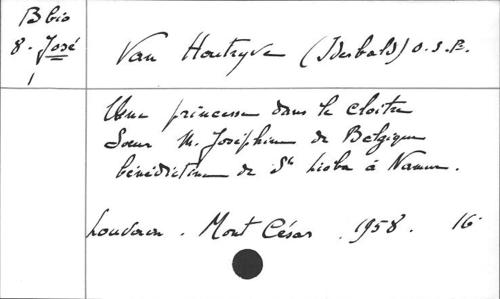 B bio
8. José
1
Van Houtryve (Idesbald) O.S.B.
Une princesse dans le cloître
Soeur M. Joséphine de Belgique
bénédictine de Ste Lioba à Namur.
Louvain. Mont César. 1958. 16°